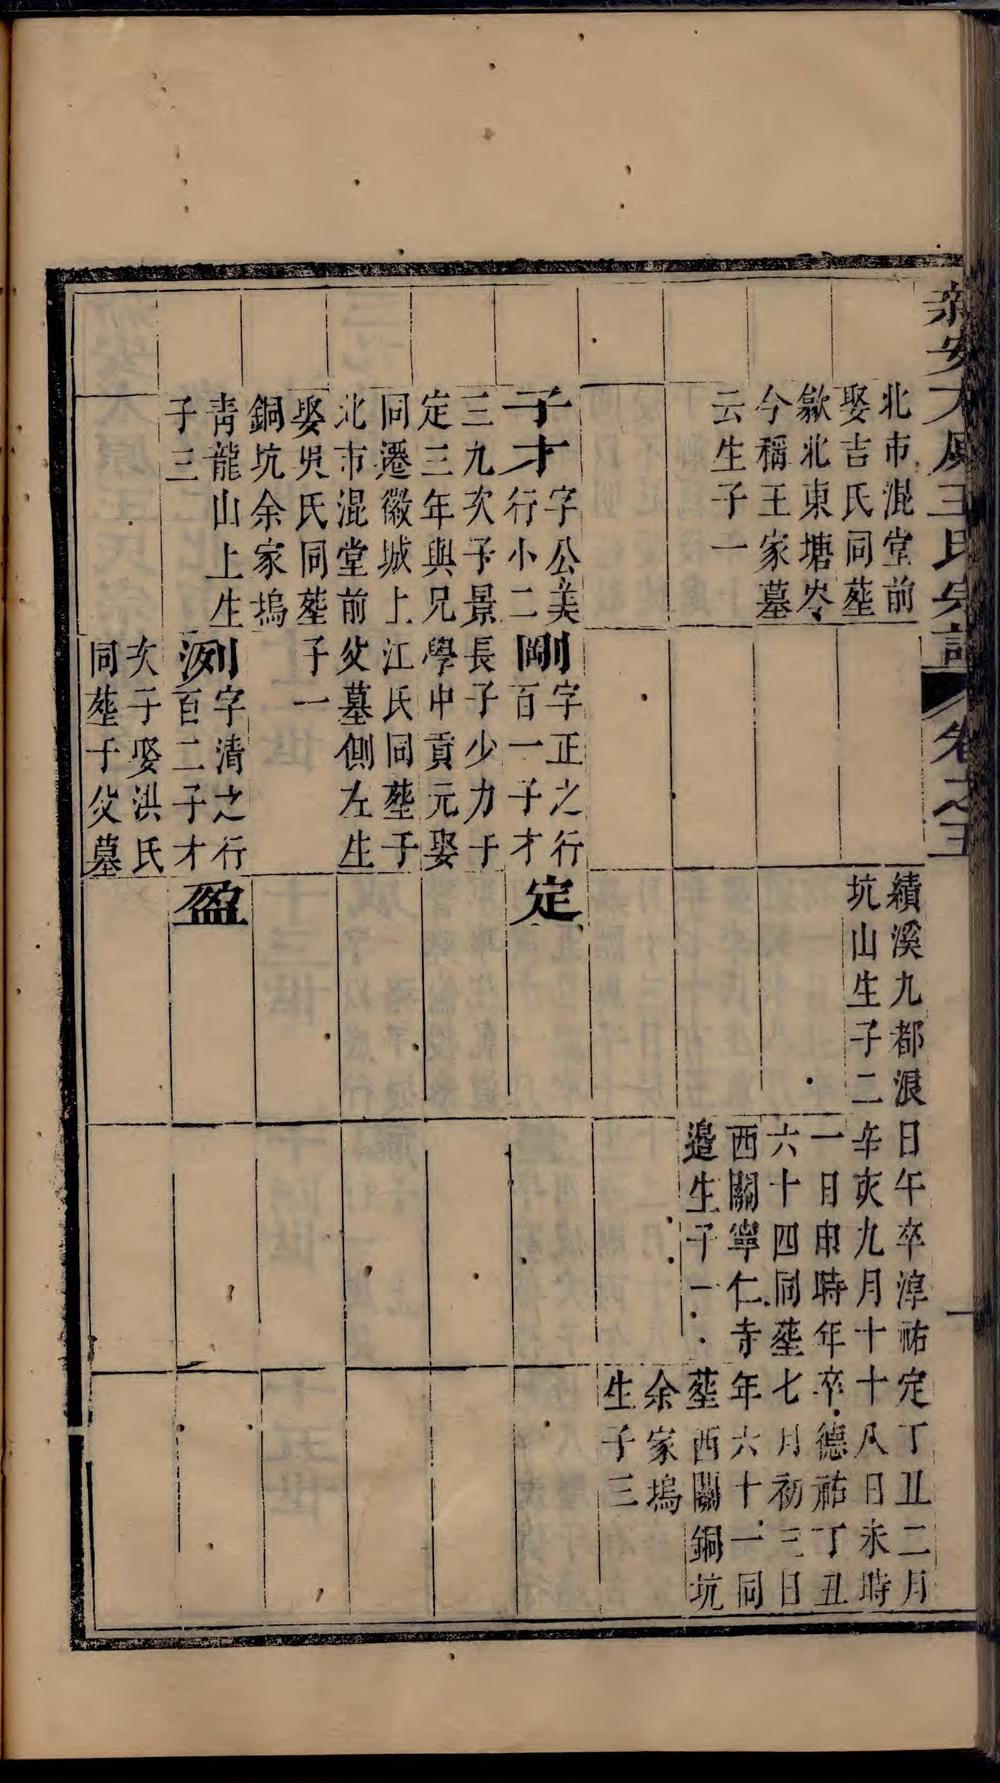 新安太原王氏宗譜
卷之五
一
北市混堂前
娶吉氏同塟
歙北東塘岑
今稱王家墓
云生子一
子才字公美
行小二
三九次子景
定三年與兄
同遷徽城上
北市混堂前
娶吳氏同塟
銅坑余家塢
青龍山上生
子三
剛字正之行
百一子才
長子少力于
學中貢元娶
江氏同塟子
父墓側左生
子一
洌字清之行
百二子才
次子娶洪氏
同塟子父墓
績溪九都浪
坑山生子二
定
盈
日午卒淳祐
辛亥九月十
一日申時年
六十四同塟
西關寧仁寺
邉生子一
定丁丑二月
十八日未時
卒德祐丁丑
七月初三日
年六十一同
塟西關銅坑
余家塢
生子三